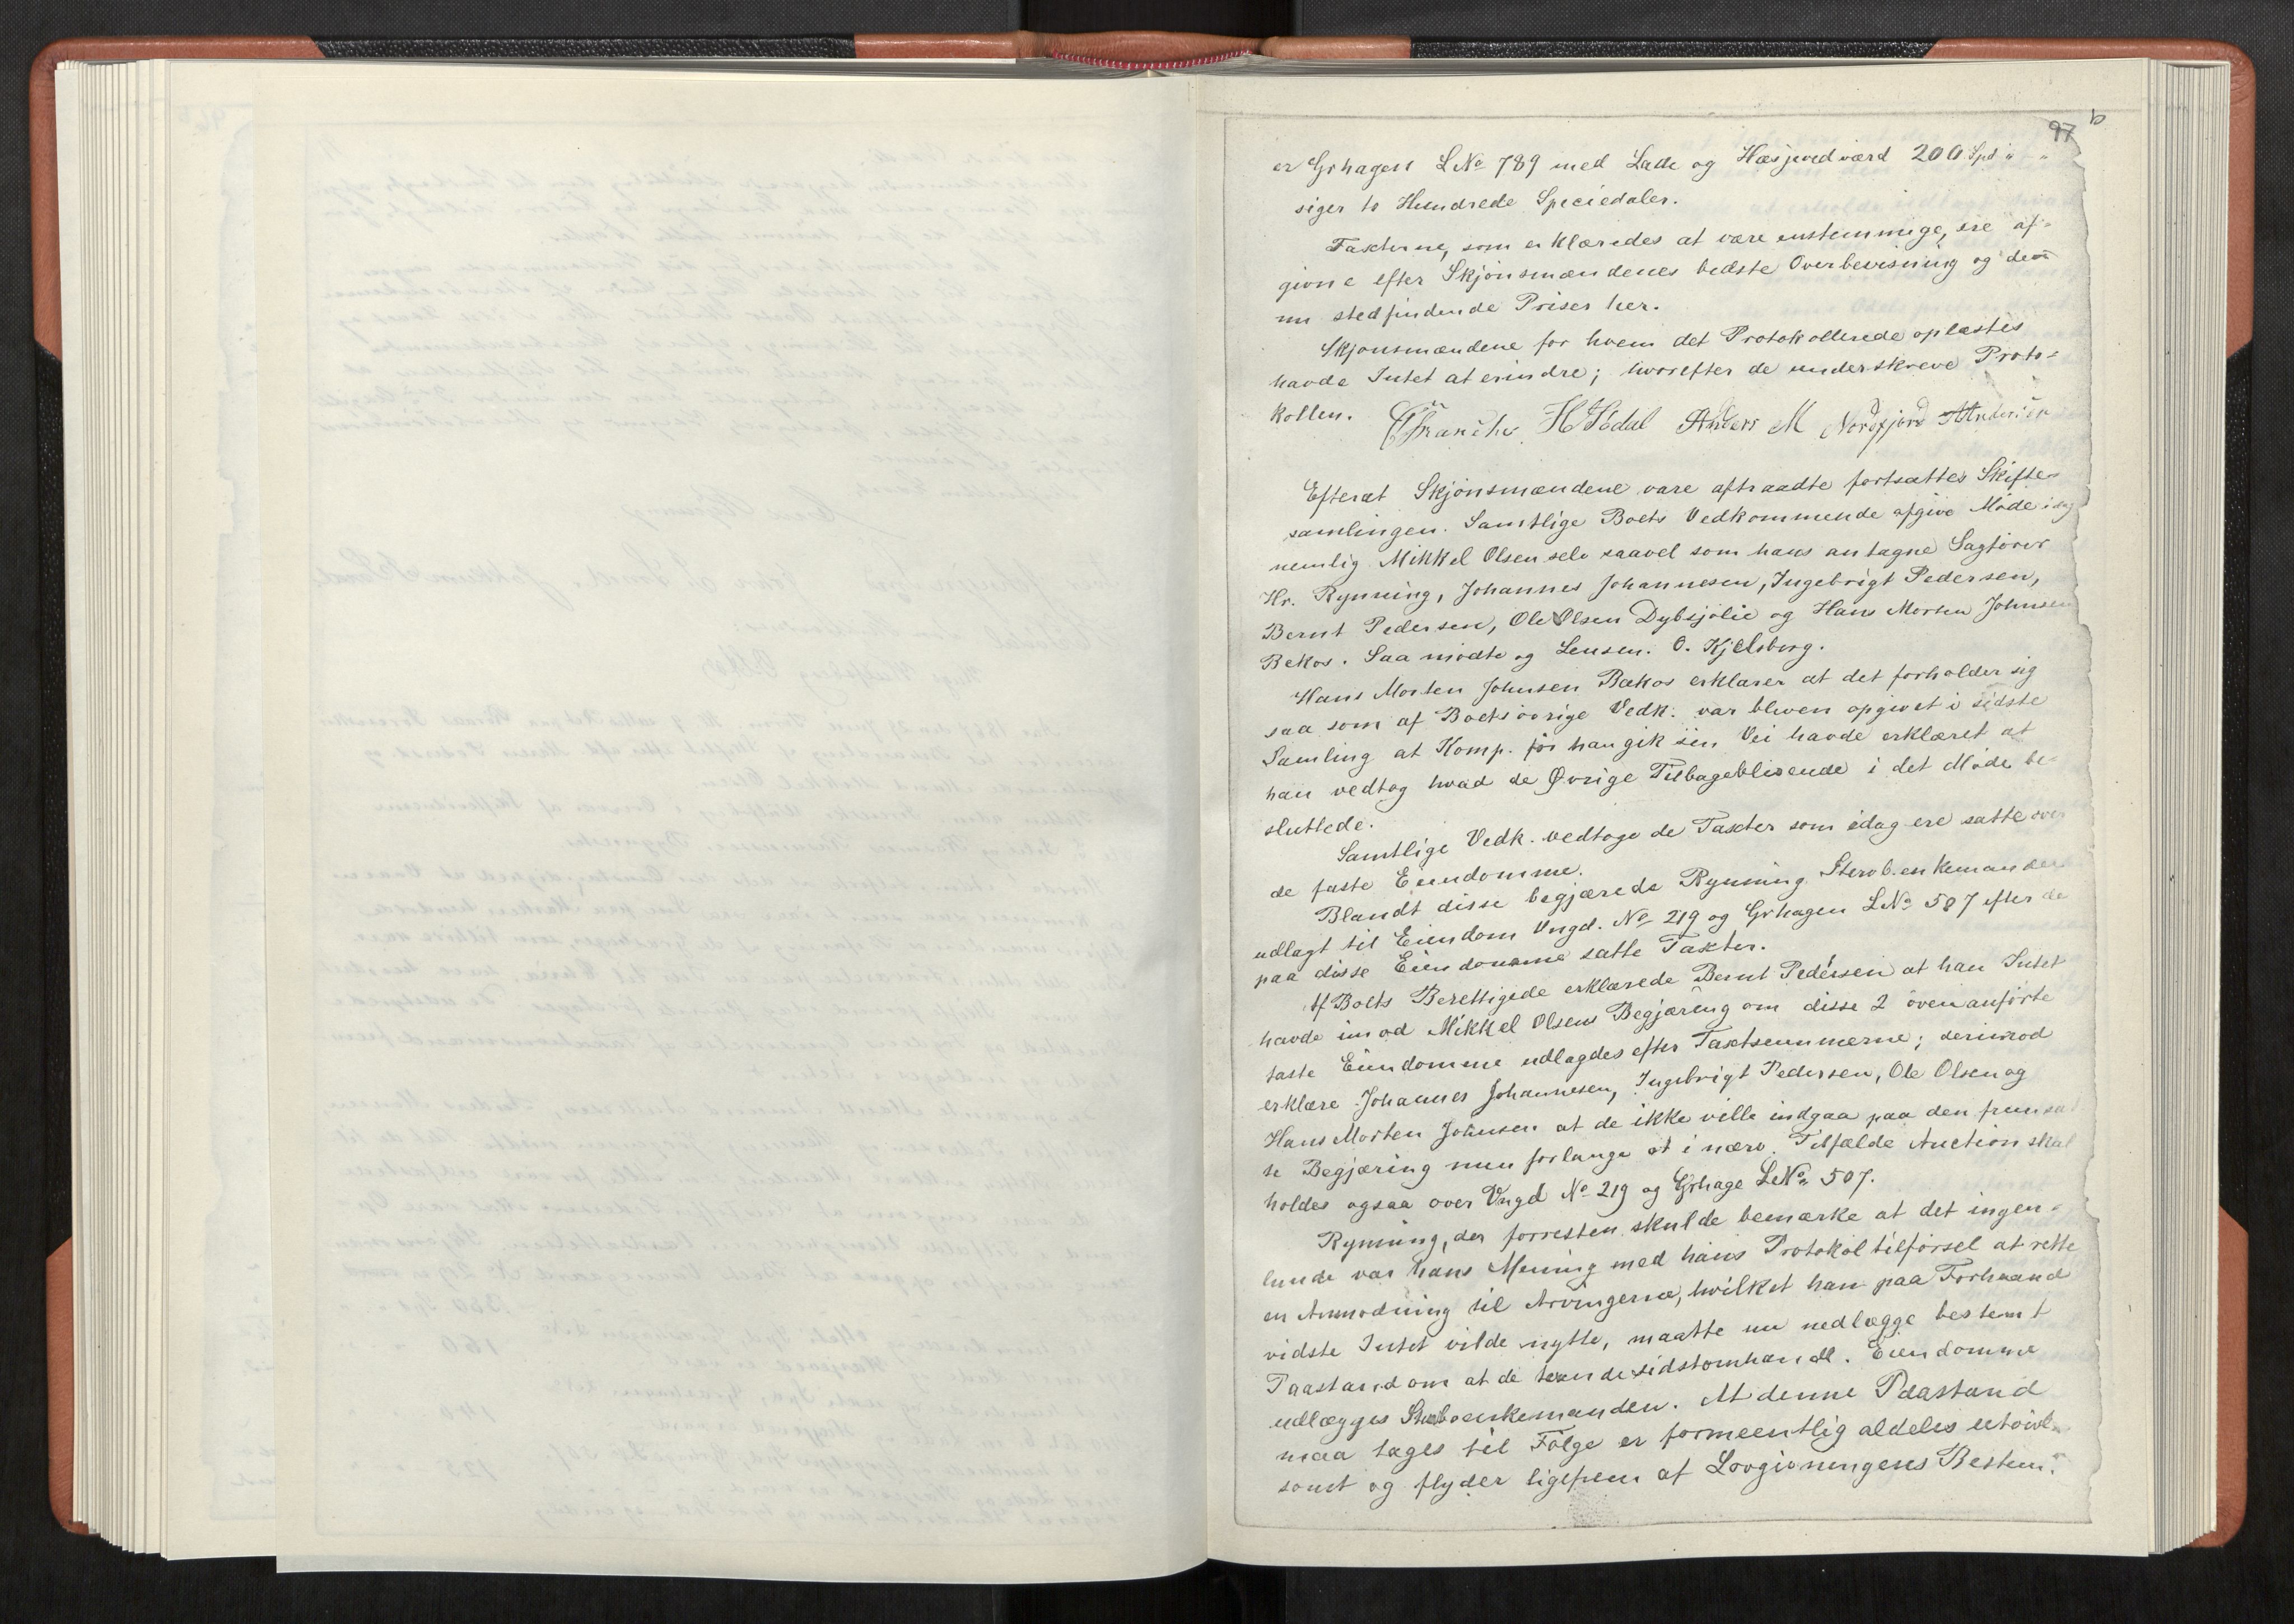 97 b
er Grhagen L No 789 med Lade og Hæsjeved værd 200 Spd " "
siger to Hundrede Speciedaler.
Taxterne, som erklæredes at være enstemmige, ere af-
givne efter Skjønsmændenes bedste Overbevisning og den
nu stedfindende Priser her.
Skjønsmændene for hvem det Protokollerede oplæstes
havde Intet at erindre; hvorefter de underskreve Proto-
kollen. H Hødal Anders M Nordfjord
Efterat Skjønsmændene vare aftraadte fortsattes Skifte-
samlingen. Samtlige Boets Vedkommende afgive Møde idag
nemlig Mikkel Olsen selv saavel som hans antagne Sagfører
Hr. Rynning, Johannes Johannesen, Ingebrigt Pedersen,
Bernt Pedersen, Ole Olsen Dybsjølie og Hans Morten Johnsen
Bekos. Saa mødte og Lensm. O. Kjelsberg.
Hans Morten Johnsen Bækos erklærer at det forholder sig
saa som af Boets øvrige Vedk. var bleven opgivet i sidste
Samling at Komp. før han gik sin Vei havde erklæret at
han vedtog hvad de Øvrige Tilbageblivende i det Møde be-
sluttede.
Samtlige Vedk. vedtoge de Taxter som idag ere satte over
de faste Eiendomme.
Blandt disse begjærede Rynning Stervb.enkemanden
udlagt til Eiendom Vngd. No 219 og Grhagen L No 587 efter de
paa disse Eiendomme satte Taxter.
Af Boets Berettigede erklærede Bernt Pedersen at han Intet
havde imod Mikkel Olsens Begjæring om disse 2 ovenanførte
faste Eiendomme udlagdes efter Taxtsummerne; derimod
erklære Johannes Johannesen, Ingebrigt Pedersen, Ole Olsen og
Hans Morten Johnsen at de ikke ville indgaa paa den fremsat
te Begjæring men forlange at i nærv. Tilfælde Auction skal
holdes ogsaa over Vngd No 219 og Grhage L No 507.
Rynning, der forresten skulde bemærke at det ingen-
lunde var hans Mening med hans Protokoltilførsel at rette
en Anmodning til Arvingerne, hvilket han paa Forhaand
vidste Intet vilde nytte, maatte nu nedlægge bestemt
Paastand om at de tvende sidstomhandl. Eiendomme
udlægges Stervboenkemanden. At denne Paastand
maa tages til Følge er formeentlig aldeles utvivl-
somt og flyder ligefrem af Lovgivningens Bestem-